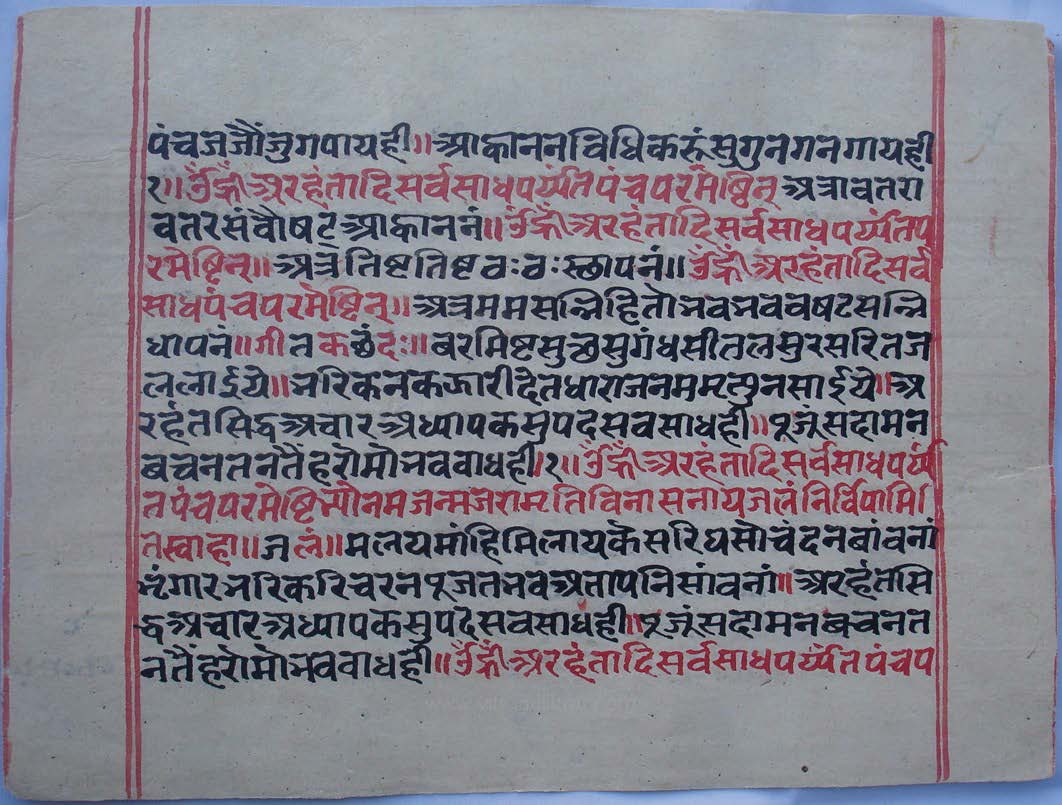 पंचजजौंजुगपायही॥आह्वाननविधिकरूंसुगुनगनगायही
१॥ॐह्रीँअरहंतादिसर्वसाधपर्य्यंतपंचपरमेष्ठिन्अत्रावतरा
वतरसंवौषट्आह्वाननं॥ॐह्रीँअरहंतादिसर्वसाधपर्य्यंतप
रमेष्ठिन्॥अत्रतिष्टतिष्टवःवःस्छापनं॥ॐह्रीँअरहंतादिसर्व
साधपंचपरमेष्ठिन्॥अत्रममसन्निहितोभवभवववषटसन्नि
धापनं॥गीतकछंदः॥बरमिष्टसुछसुगंधसीतलसुरसरितज
ललाईये॥भरिकनकझारीदैतधाराजनममरतुनसाईये॥अ
रहंतसिद्धअचारअध्यापकसुपदसवसाधही॥पूजूंसदामन
बचनतनतैंहरोमोभववाधही।१॥ॐह्रीँअरहंतादिसर्वसाधपर्य्यं
तपंचपरमेष्टिभ्योनमजन्मजरामरतिविनासनायजलंनिर्विपामि
तेस्वाहा॥जलं॥मलयमांहिमिलायकेसरिघसौचंदनबांवनां
भृंगारभरिकरिचरनपूजतभवअतापनिसांवनां॥अरहंतसि
द्धअचारअध्यापकसुपदसवसाधही॥पूजूंसदामनबचनत
नतैंहरोमोभववाधही॥ॐह्रीँअरहंतादिसर्वसाधपर्य्यंतपंचप